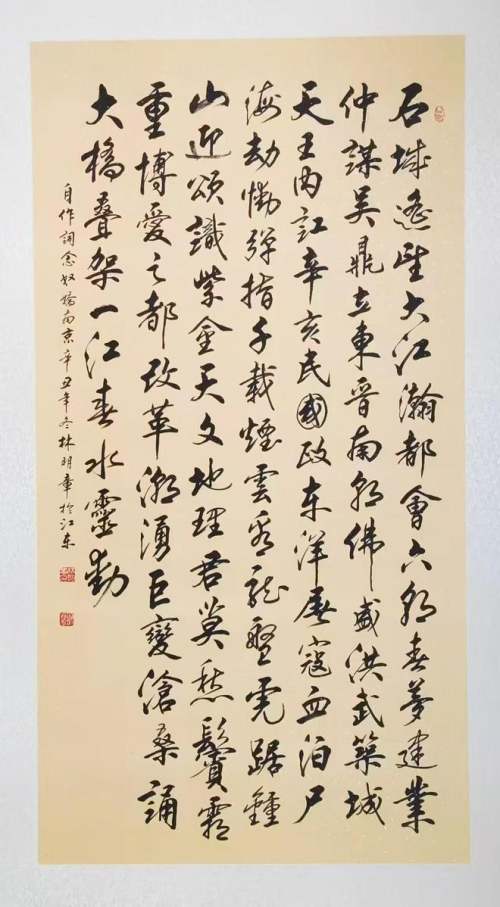 石城遙望大江瀚都會六朝春夢建業
仲謀吳鼎立東晉南朝佛盛洪武築城
天王內訌辛亥民國政东洋屠寇血泊尸
海劫慟彈指千載煙雲看龍盤虎踞鍾
山迎頌識紫金天文地理君莫愁鬢霜
重博愛之都改革潮湧巨變滄桑誦
大橋叠架一江春水靈動
自作詞念奴嬌南京辛丑年冬林明章於江东